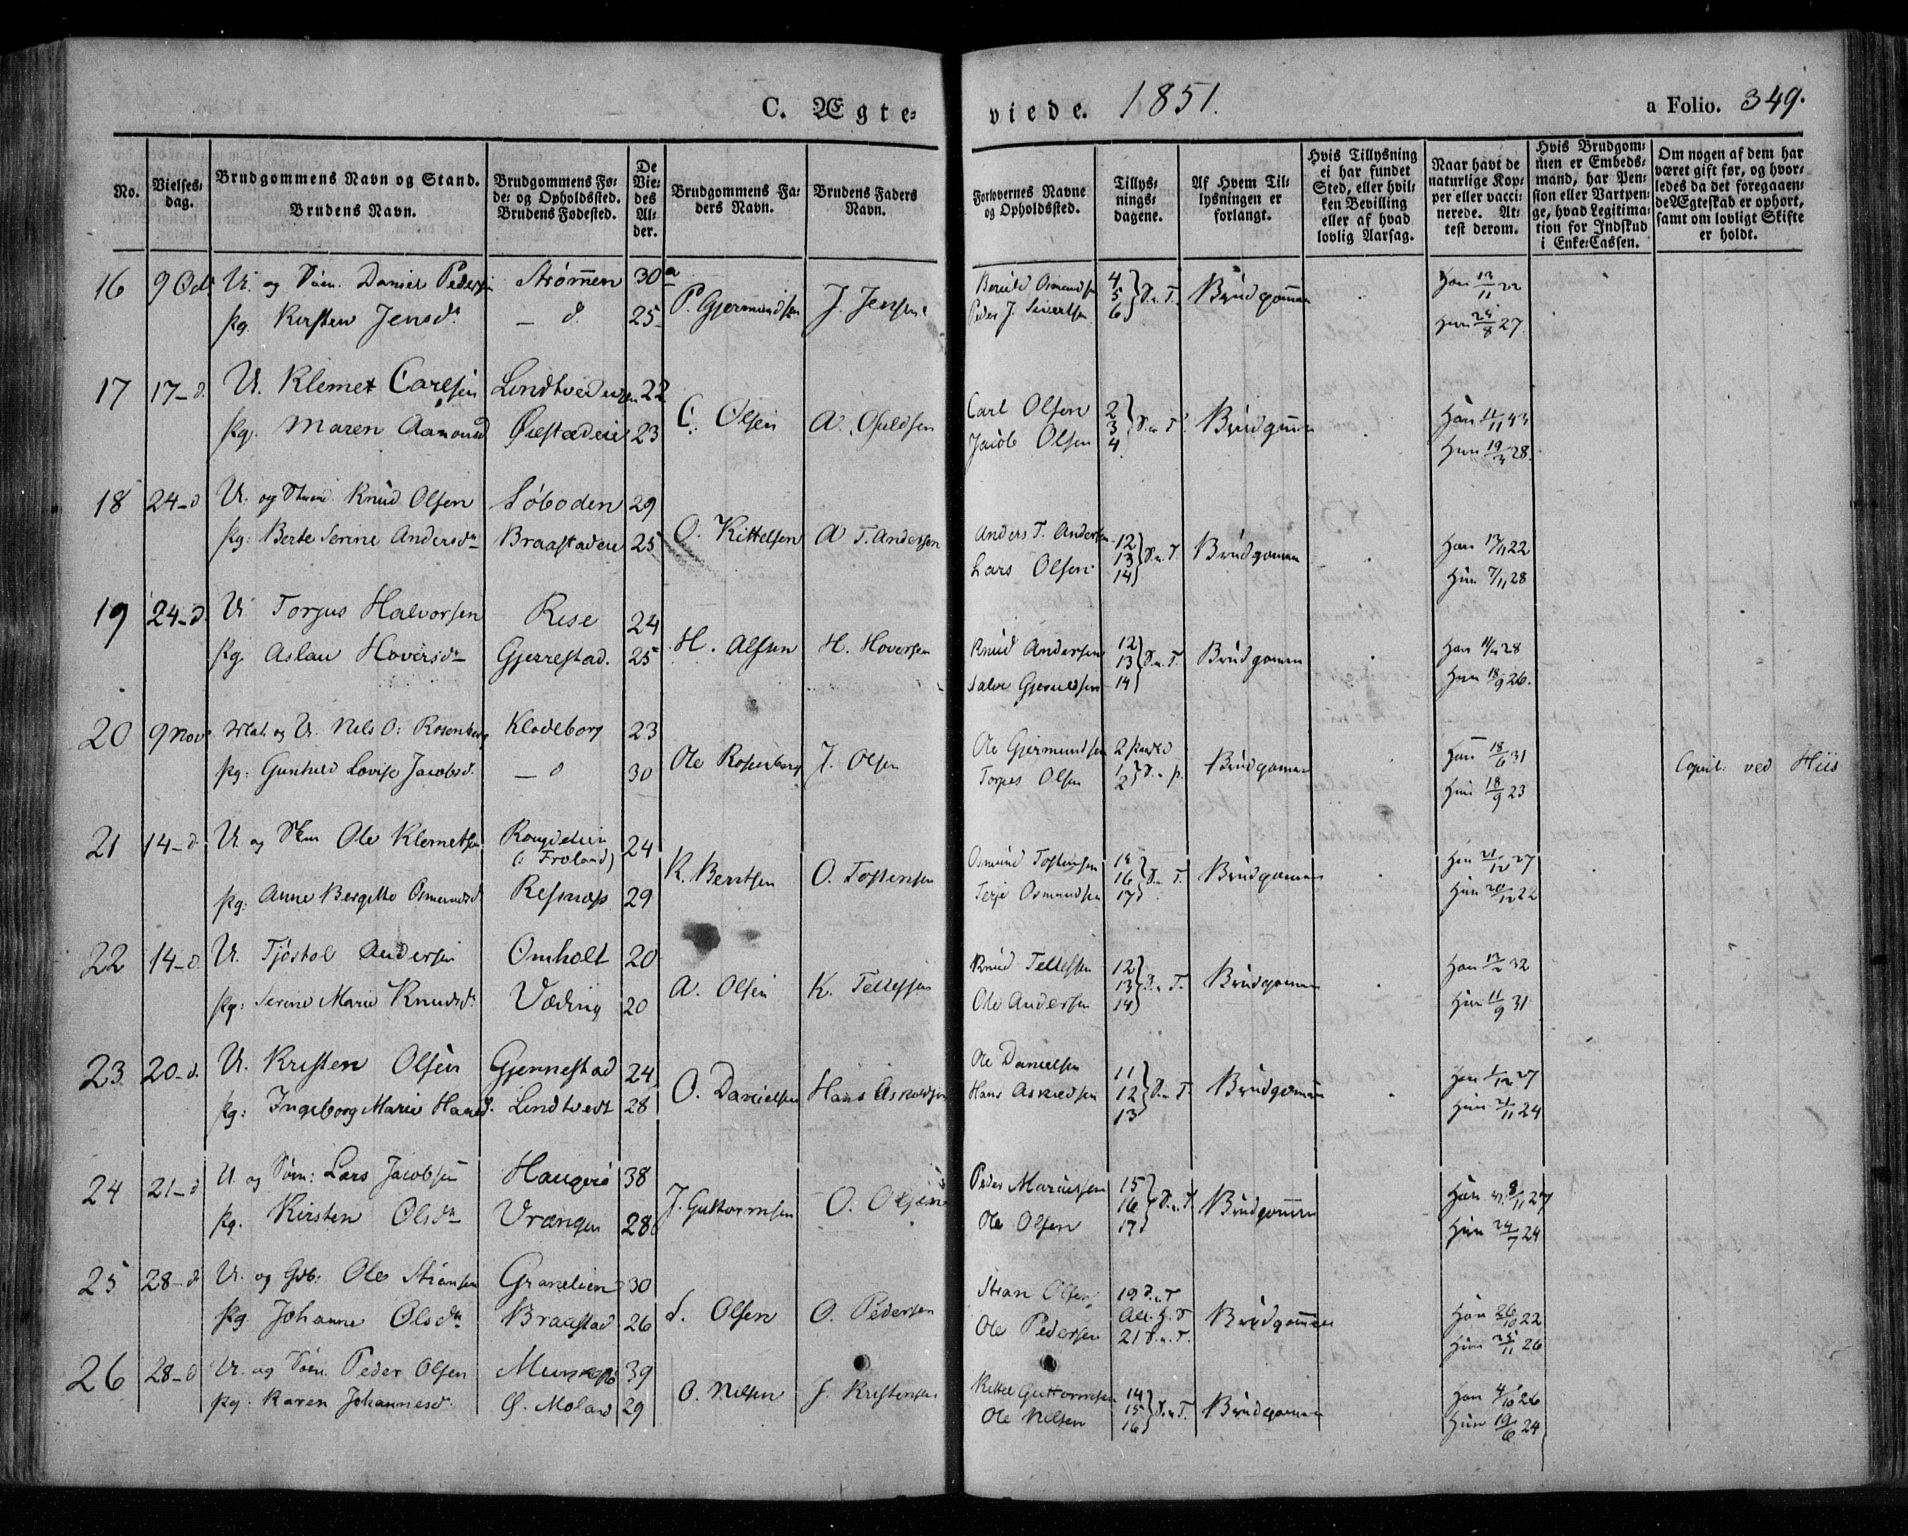 C. Ægte- viede. 1851. a Folio. 349.
No. | Vielses-dag. | Brudgommens Navn og Stand. Brudens Navn. | Brudgommens Føde- og Opholdssted. Brudens Fødested. | De Viedes Alder. | Brudgommens Faders Navn. | Brudens Faders Navn. | Forlovernes Navne og Opholdssted. | Tillysningsdagene. | Af Hvem Tillysningen er forlangt. | Hvis Tillysning ei har fundet Sted, eller hvilken Bevilling eller af hvad lovlig Aarsag. | Naar havt de naturlige Kopper eller vaccinerede. Attest derom. | Hvis Brudgommen er Embedsmand, har Pension eller Vartpenge, hvad Legitimation for Indskud i Enke-Cassen. | Om nogen af dem har været gift før, og hvorledes da det foregaaende Ægteskab er ophørt, samt om lovligt Skifte er holdt.
16 | 9 Oct | U. og Søm. Daniel Peders | Strømen | 30 | P. Gjermundsen | J. Jensen | Osmundsen | 4 5 6 S. n. T. | Brudgomen | Han 12/11 22
Pg. Kirsten Jensd. | — d. | 25 | Peder J. Sivertsen | Hun 24/8 27
17 | 17 - d. | U. Klemet Carlsen | Lindtveden | 22 | C. Olsen | A. | Carl Olsen | 2 3 4 S. n. T. | Brudgomen | Han 11/11 43
Pg. Maren Aamonsd | Øiestadeie | 23 | Jacob Olsen | Hun 19/3 28.
18 | 24 - d | U. og Knud Olsen | Søboden | 29 | O. Kittelsen | A T. Andersen | Anders T. Andersen | 12 13 14 S. n. T. | Brudgomen | Han 22
Pg: Berte Serine Andersd. | Braastadeie | 25 | Lars Olsen | Hun 7/11 28
19 | 24 - d. | U. Torjus Halvorsen | Rise | 24 | H. Alfsen | H. Hoversen | Knud Andersen | 12 13 14 S. n. T. | Brudgomen | Han 28
Pg. Aslau Hoversd. | Gjerrestad. | 25 | Salve Gjeruldsen | Hun 18/9 26.
20 | 9 Nov | og U. Nils O: Rosenberg | Klodeborg | 23 | Ole Rosenberg | J. Olsen | Ole Gjermundsen | 2 1 2 S. n. p. | Brudgomen | Han 18/6 31 | Copul. ved Hiis
Pg: Gunhild Lovise Jacobsd. | — d | 30 | Torjes Olsen | Hun 18/9 23
21 | 14 - d. | U. og Ole Klemetsen | (i Froland) | 24 | K. Berntsen | O. Tostensen | Osmund Tostensen | 16 17 S. n. T. | Brudgomen | Han 21/12 27
Pg: Anne Bergitte Osmundsd. | Resnæs | 29 | Terje Osmundsen | Hun 20/12 22
22 | 14 - d. | U. Tjöstol Andersen | Omholt | 20 | A. Olsen | K. Tellefsen | Knud Tellefsen | 12 13 14 S. n. T. | Brudgomen | Han 32
Pg: Serine Marie Knudsd. | Væding | 20 | Ole Andersen | Hun 11/9 31
23 | 20 - d. | U. Kristen Olsen | Gjennestad | 24 | O. Danielsen | Hans | Ole Danielsen | 11 12 13 S. n. T. | Brudgomen | Han 1/12 27
Pg: Ingeborg Marie Hansd. | Lindtvedt | 28 | Hans | Hun 21/11 24
24 | 21 - d | U. og Søm: Lars Jacobsen | 38 | J. Guttormsen | O. Olsen | Peder | 15 16 17 S. n. T. | Brudgomen | Han 8/11 27
Pg. Kirsten Olsd. | Vrængen | 28 | Ole Olsen | Hun 24/7 24
25 | 28 - d | U. og Gdb: Ole Stiansen | Granelien | 30 | S. Olsen | O. Pedersen | Stian Olsen | 19 S. n. T | Brudgomen | Han 26/10 22
Pg Johanne Olsd. | Braastad | 26 | Ole Pedersen | 21 S. n. T. | Hun 25/11 26
26 | 28 - d | U. og Søm. Peder Olsen | 39 | O. Nilsen | J. Kristensen | Kittel Guttormsen | 14 15 16 S. n. T. | Brudgomen | Han 4/10 26
Pg. Karen Johannesd. | Ø. Moland | 29 | Ole Nilsen | Hun 19/6 24